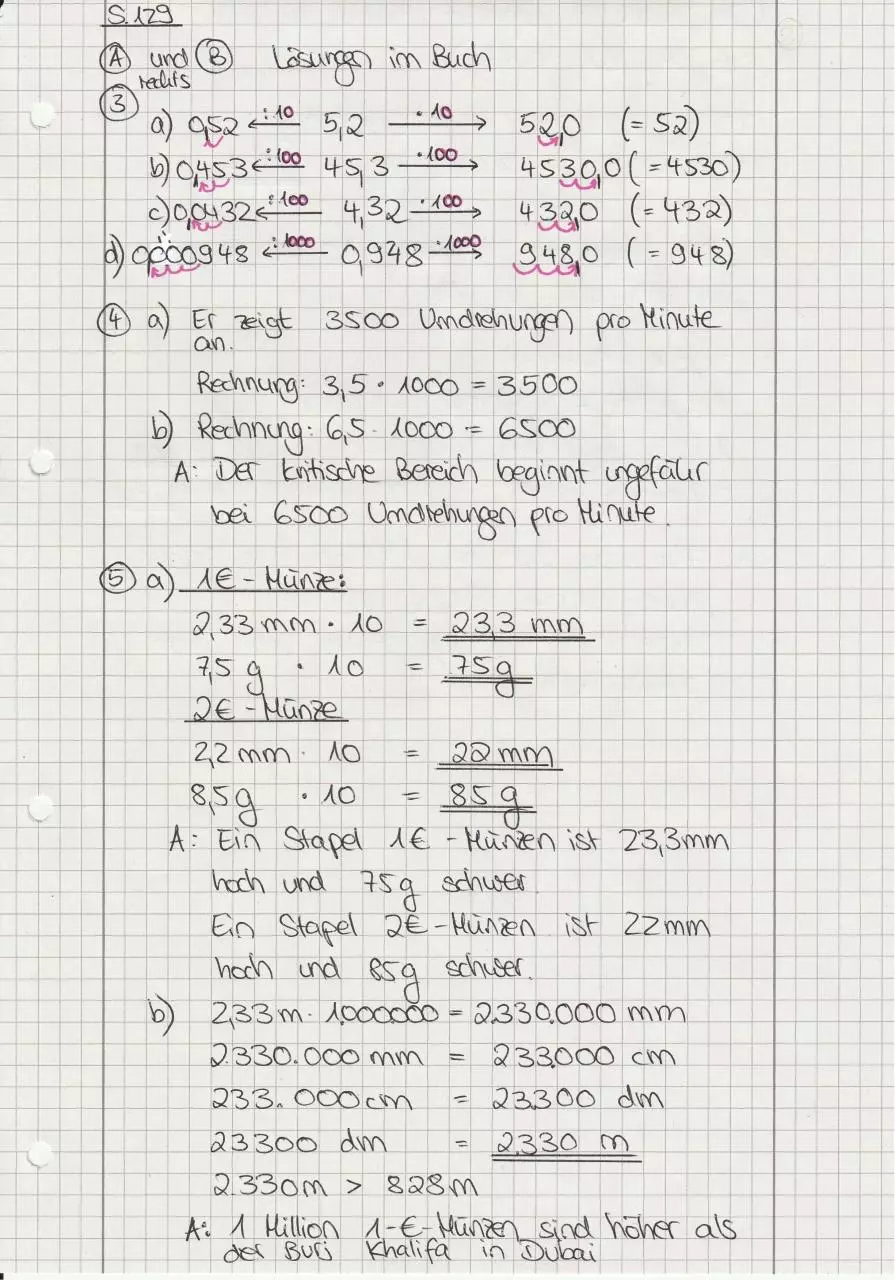 S.129
A und B Lösungen im Buch
rechts
3
a) 0,52 ←:10 5,2 ·10→ 52,0 (= 52)
b) 0,453 ←:100 45,3 ·100→ 4530,0 (= 4530)
c) 0,0432 ←:100 4,32 ·100→ 432,0 (= 432)
d) 0,000948 ←:1000 0,948 ·1000→ 948,0 (= 948)
4 a) Er zeigt 3500 Umdrehungen pro Minute
an.
Rechnung: 3,5 · 1000 = 3500
b) Rechnung: 6,5 · 1000 = 6500
A: Der kritische Bereich beginnt ungefähr
bei 6500 Umdrehungen pro Minute.
5 a) 1€ - Münze:
2,33 mm · 10 = 23,3 mm
7,5 g · 10 = 75g
2€ - Münze
2,2 mm · 10 = 22 mm
8,5g · 10 = 85 g
A: Ein Stapel 1€ - Münzen ist 23,3mm
hoch und 75g schwer.
Ein Stapel 2€ - Münzen ist 22mm
hoch und 85g schwer.
b) 2,33 m · 1.000000 = 2.330.000 mm
2.330.000 mm = 233.000 cm
233.000 cm = 23.300 dm
23300 dm = 2.330 m
2.330m > 828m
A: 1 Million 1-€-Münzen sind höher als
der Burj Khalifa in Dubai